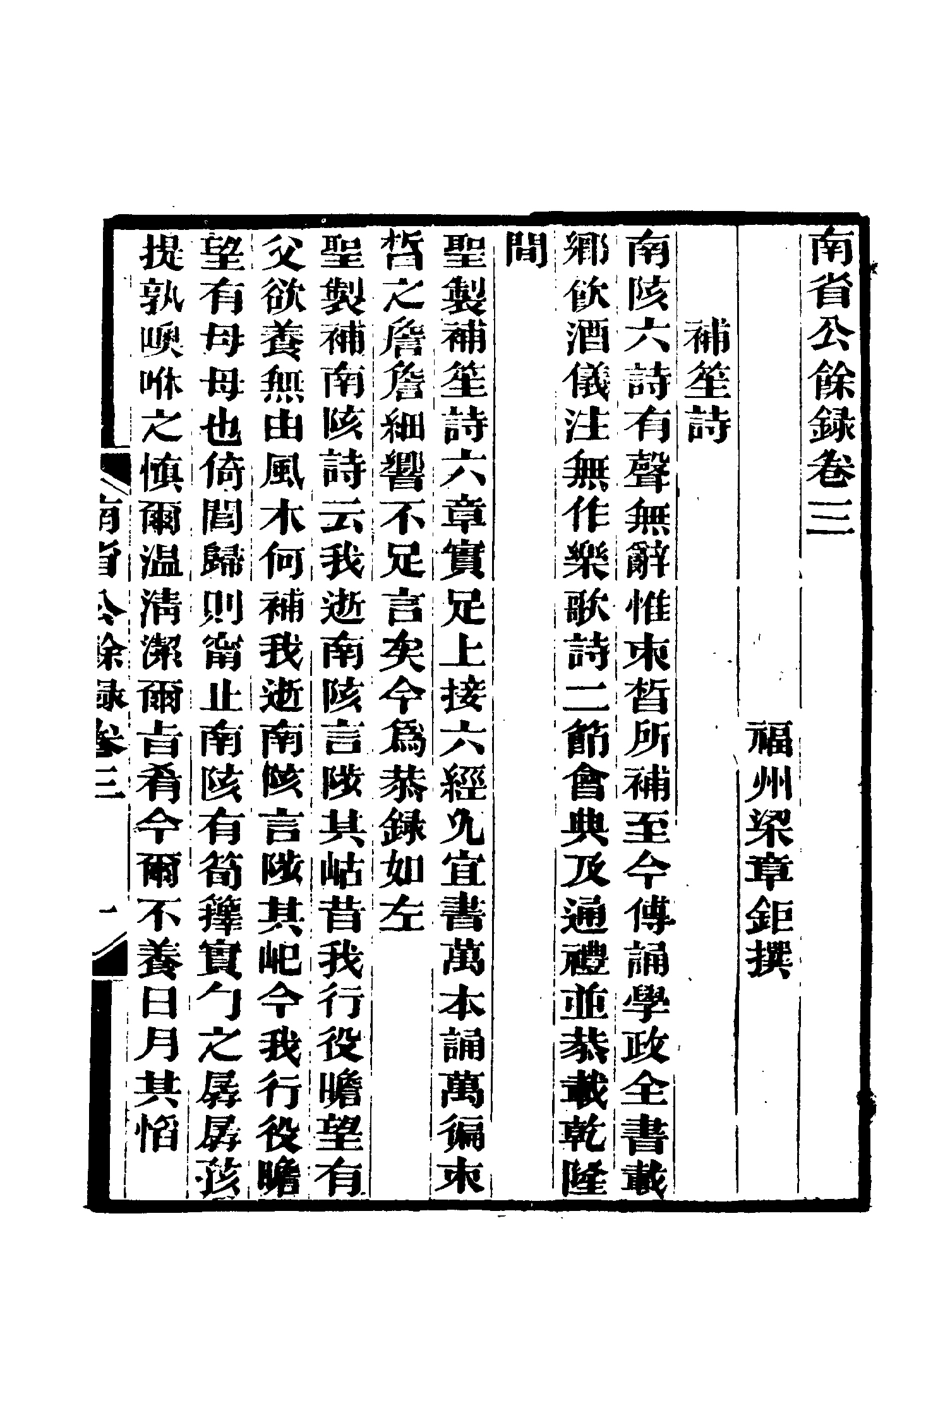 南省公餘録卷三
福州梁章鉅撰
補笙詩
南陔六詩有聲無辭惟束晳所補至今傳誦學政全書載
鄉飲酒儀注無作樂歌詩二節會典及通禮並恭載乾隆
間
聖製補笙詩六章實足上接六經允宜書萬本誦萬徧束
晳之詹詹細響不足言矣今爲恭録如左
聖製補南陔詩云我逝南陔言陟其岵昔我行役瞻望有
父欲養無由風木何補我逝南陔言陟其屺今我行役瞻
望有母母也倚閭歸則甯止南陔有筍籜實勹之孱孱孩
提孰噢咻之愼爾温淸潔爾旨肴今爾不養日月其慆
南省公餘録卷三
一